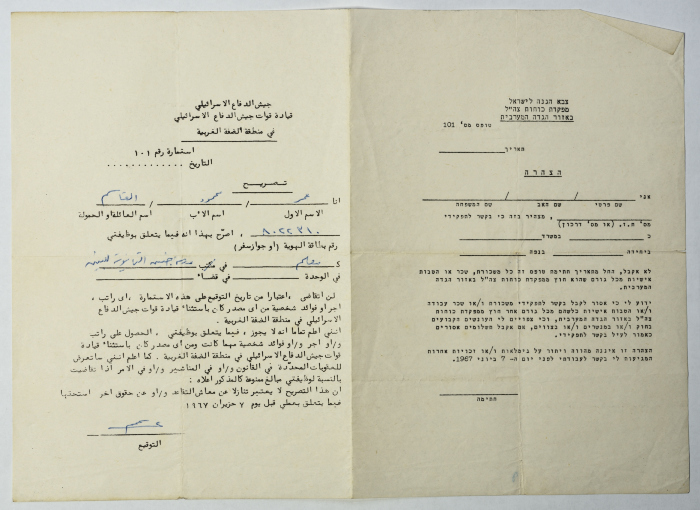 جيش الدفاع الاسرائيلي
قيادة قوات جيش الدفاع الاسرائيلي
في منطقة الضفة الغربية
استمارة رقم ١٠١
التاريخ . . . . . . . . . . . .
تصريح
انا عمر / محمود / القاسم
الاسم الاول اسم الاب اسم العائلة او الحمولة
٨٠٢٢٣١٠ ، اصرّح بهذا انه فيما يتعلق بوظيفتي
رقم بطاقة الهوية (او جواز سفر)
كـ معلم في مكتب
في الوحدة في قضاء
لن اتقاضى ، اعتبارا من تاريخ التوقيع على هذه الاستمارة ، اى راتب ،
اجر او فوائد شخصية من اى مصدر كان باستثناء قيادة قوات جيش الدفاع
الاسرائيلي في منطقة الضفة الغربية .
انني اعلم تماما انه لا يجوز ، فيما يتعلق بوظيفتي ، الحصول على راتب
و/او اجر و/او فوائد شخصية مهما كانت ومن اى مصدر كان باستثناء قيادة
قوات جيش الدفاع الاسرائيلي في منطقة الضفة الغربية . كما اعلم انني سأتعرض
للعقوبات المحدّدة في القانون و/او في المناشير و/او في الاوامر اذا تقاضيت
بالنسبة لوظيفتي مبالغ ممنوعة كالمذكور اعلاه .
ان هذا التصريح لا يعتبر تنازلا عن معاش التقاعد و/او عن حقوق اخر استحقها
فيما يتعلق بعملي قبل يوم ٧ حزيران ١٩٦٧
التوقيع
צבא הגנה לישראל
מפקדת כוחות צה"ל
באזור הגדה המערבית
טופס מס' 101
תאריך
הצהרה
אני / / /
שם פרטי שם האב שם המשפחה
, מצהיר בזה כי בקשר לתפקידי
מס' ת.ז. (או מס' דרכון)
כ במשרד
ביחידה בנפת
לא אקבל, החל מתאריך חתימת טופס זה כל משכורת, שכר או הטבות
אישיות מכל גורם שהוא חוץ ממפקדת כוחות צה"ל באזור הגדה
המערבית.
ידוע לי כי אסור לקבל בקשר לתפקידי משכורת ו/או שכר עבודה
ו/או הטבות אישיות כלשהם מכל גורם אחר חוץ ממפקדת כוחות
צה"ל באזור הגדה המערבית, וכי צפויים לי העונשים הקבועים
בחוק ו/או במנשרים ו/או בצווים, אם אקבל תשלומים אסורים
כאמור לעיל בקשר לתפקידי.
הצהרה זו איננה מהווה ויתור על גימלאות ו/או זכויות אחרות
המגיעות לי בקשר לעבודתי לפני יום ה- 7 ביוני 1967.
חתימה